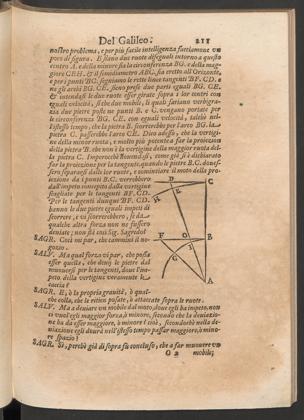 Del Galileo. 211
nostro problema, e per più facile intelligenza facciamone un
poco di figura. E siano due ruote diseguali intorno a questo
centro A. e della minore sia la circonferenza BG. e della mag-
giore CEH. & il semidiametro ABC. sia eretto all'Orizonte,
e per i punti BC. segniamo le rette linee tangenti BF. CD.
e ne gli archi BG. CE. sieno prese due parti eguali BG. CE.
& intendasi le due ruote esser girate sopra i lor centri con
eguali velocità, sì che due mobili, li quali sariano verbigra-
zia due pietre poste ne i punti B. e C. vengano portate per
le circonferenze BG. CE. con eguali velocità, talchè nel-
l'istesso tempo, che la pietra B. scorrerebbe per l'arco BG. la
pietra C. passerebbe l'arco CE. Dico adesso, che la vertigine
della minor ruota, è molto più potente a far la proiezione
della pietra B. che non è la vertigine della maggior ruota del-
la pietra C. Imperocchè dovendosi, come già si è dichiarato
far la proiezione per la tangente, quando le pietre B. C. doves-
sero separarsi dalle lor ruote, e cominciare il moto della pro-
iezione da i punti B. C. verrebbero
dall'impeto concepito dalla vertigine
scagliate per le tangenti BF. CD.
Per le tangenti dunque BF. CD.
hanno le due pietre eguali impeti di
scorrere, e vi scorrerebbero, se da
qualche altra forza non ne fussero
deviate; non stà così Sig. Sagredo?
SAGR. Così mi par, che cammini il ne-
gozio.
SALV. Ma qual forza vi par, che possa
esser quella, che devij le pietre dal
muoversi per le tangenti, dove l'im-
peto della vertigine veramente le
caccia?
SAGR. E, ò la propria gravità, ò qual-
che colla, che le ritien posate, ò attaccate sopra le ruote.
SALV. Ma a deviare un mobile dal moto, dove egli ha impeto, non
ci vuol egli maggior forza, ò minore, secondo che la deviazio-
ne ha da esser maggiore, ò minore? cioè, secondo che nella de-
viazione egli dovrà nell'istesso tempo passar maggiore, ò mino-
re spazio?
SAGR. Sì, perchè già di sopra fù concluso, che a far muovere un
O 2 mobile;
D C
H E
F O B
G I
A